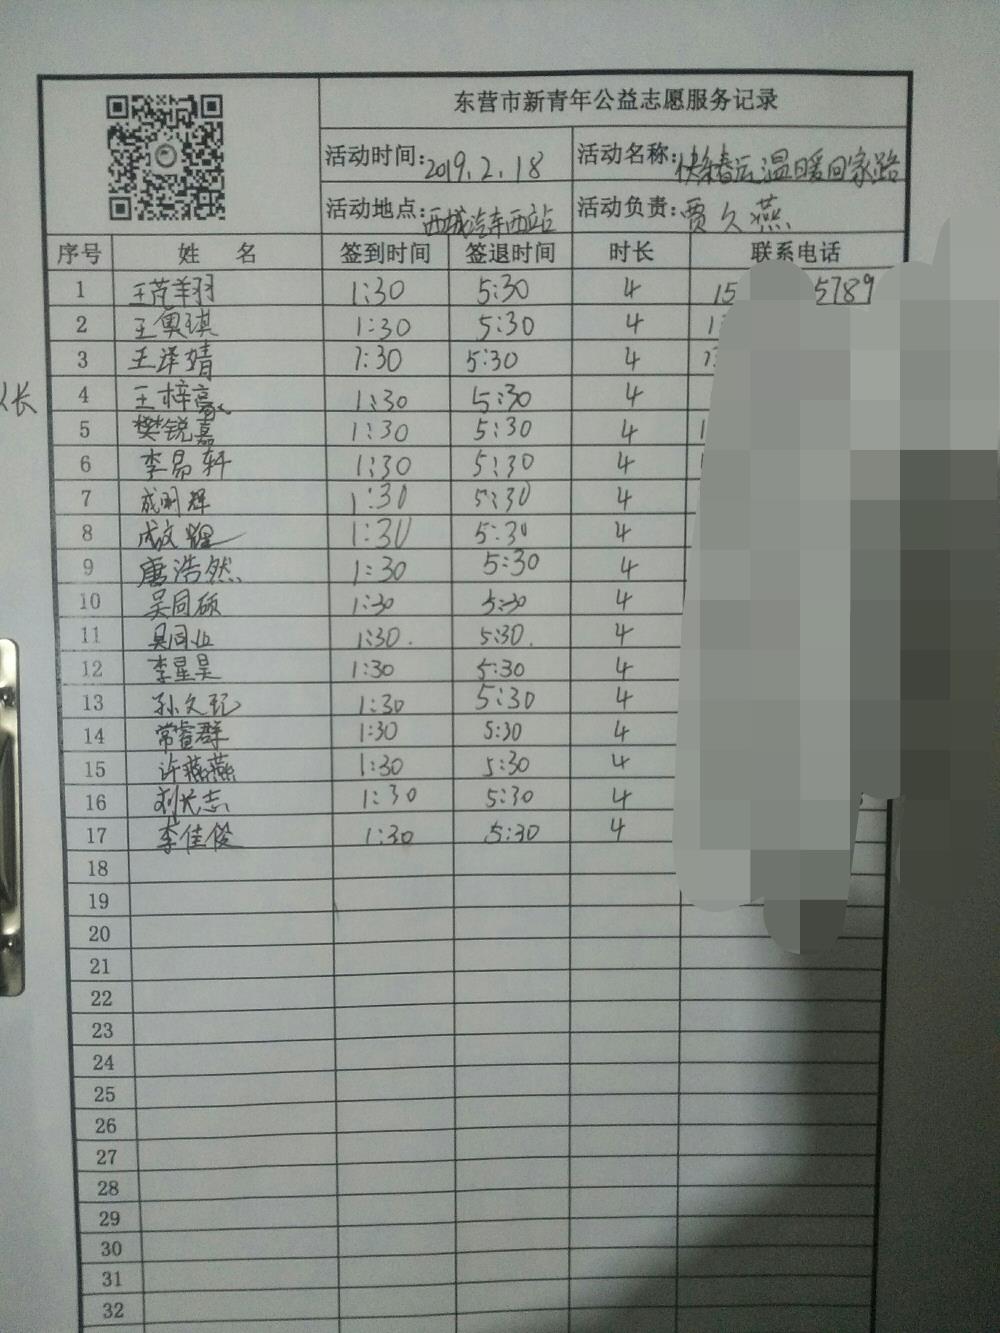 东营市新青年公益志愿服务记录
活动时间: 2019.2.18 活动名称: 春运温暖回家路
活动地点: 西城汽车西站 活动负责: 贾久燕
序号 姓 名 签到时间 签退时间 时长 联系电话
1 王芮羽 1:30 5:30 4 15 5789
2 王奥琪 1:30 5:30 4 1
3 王泽婧 1:30 5:30 4
4 王梓豪 1:30 5:30 4
长
5 樊锐嘉 1:30 5:30 4 1
6 李易轩 1:30 5:30 4
7 成明辉 1:30 5:30 4
8 成文耀 1:30 5:30 4
9 唐浩然 1:30 5:30 4
10 吴同硕 1:30 5:30 4
11 吴同 1:30. 5:30. 4
12 李星昊 1:30 5:30 4
13 孙文 1:30 5:30 4
14 常睿群 1:30 5:30 4
15 许燕燕 1:30 5:30 4
16 刘长志 1:30 5:30 4
17 李佳俊 1:30 5:30 4
18
19
20
21
22
23
24
25
26
27
28
29
30
31
32